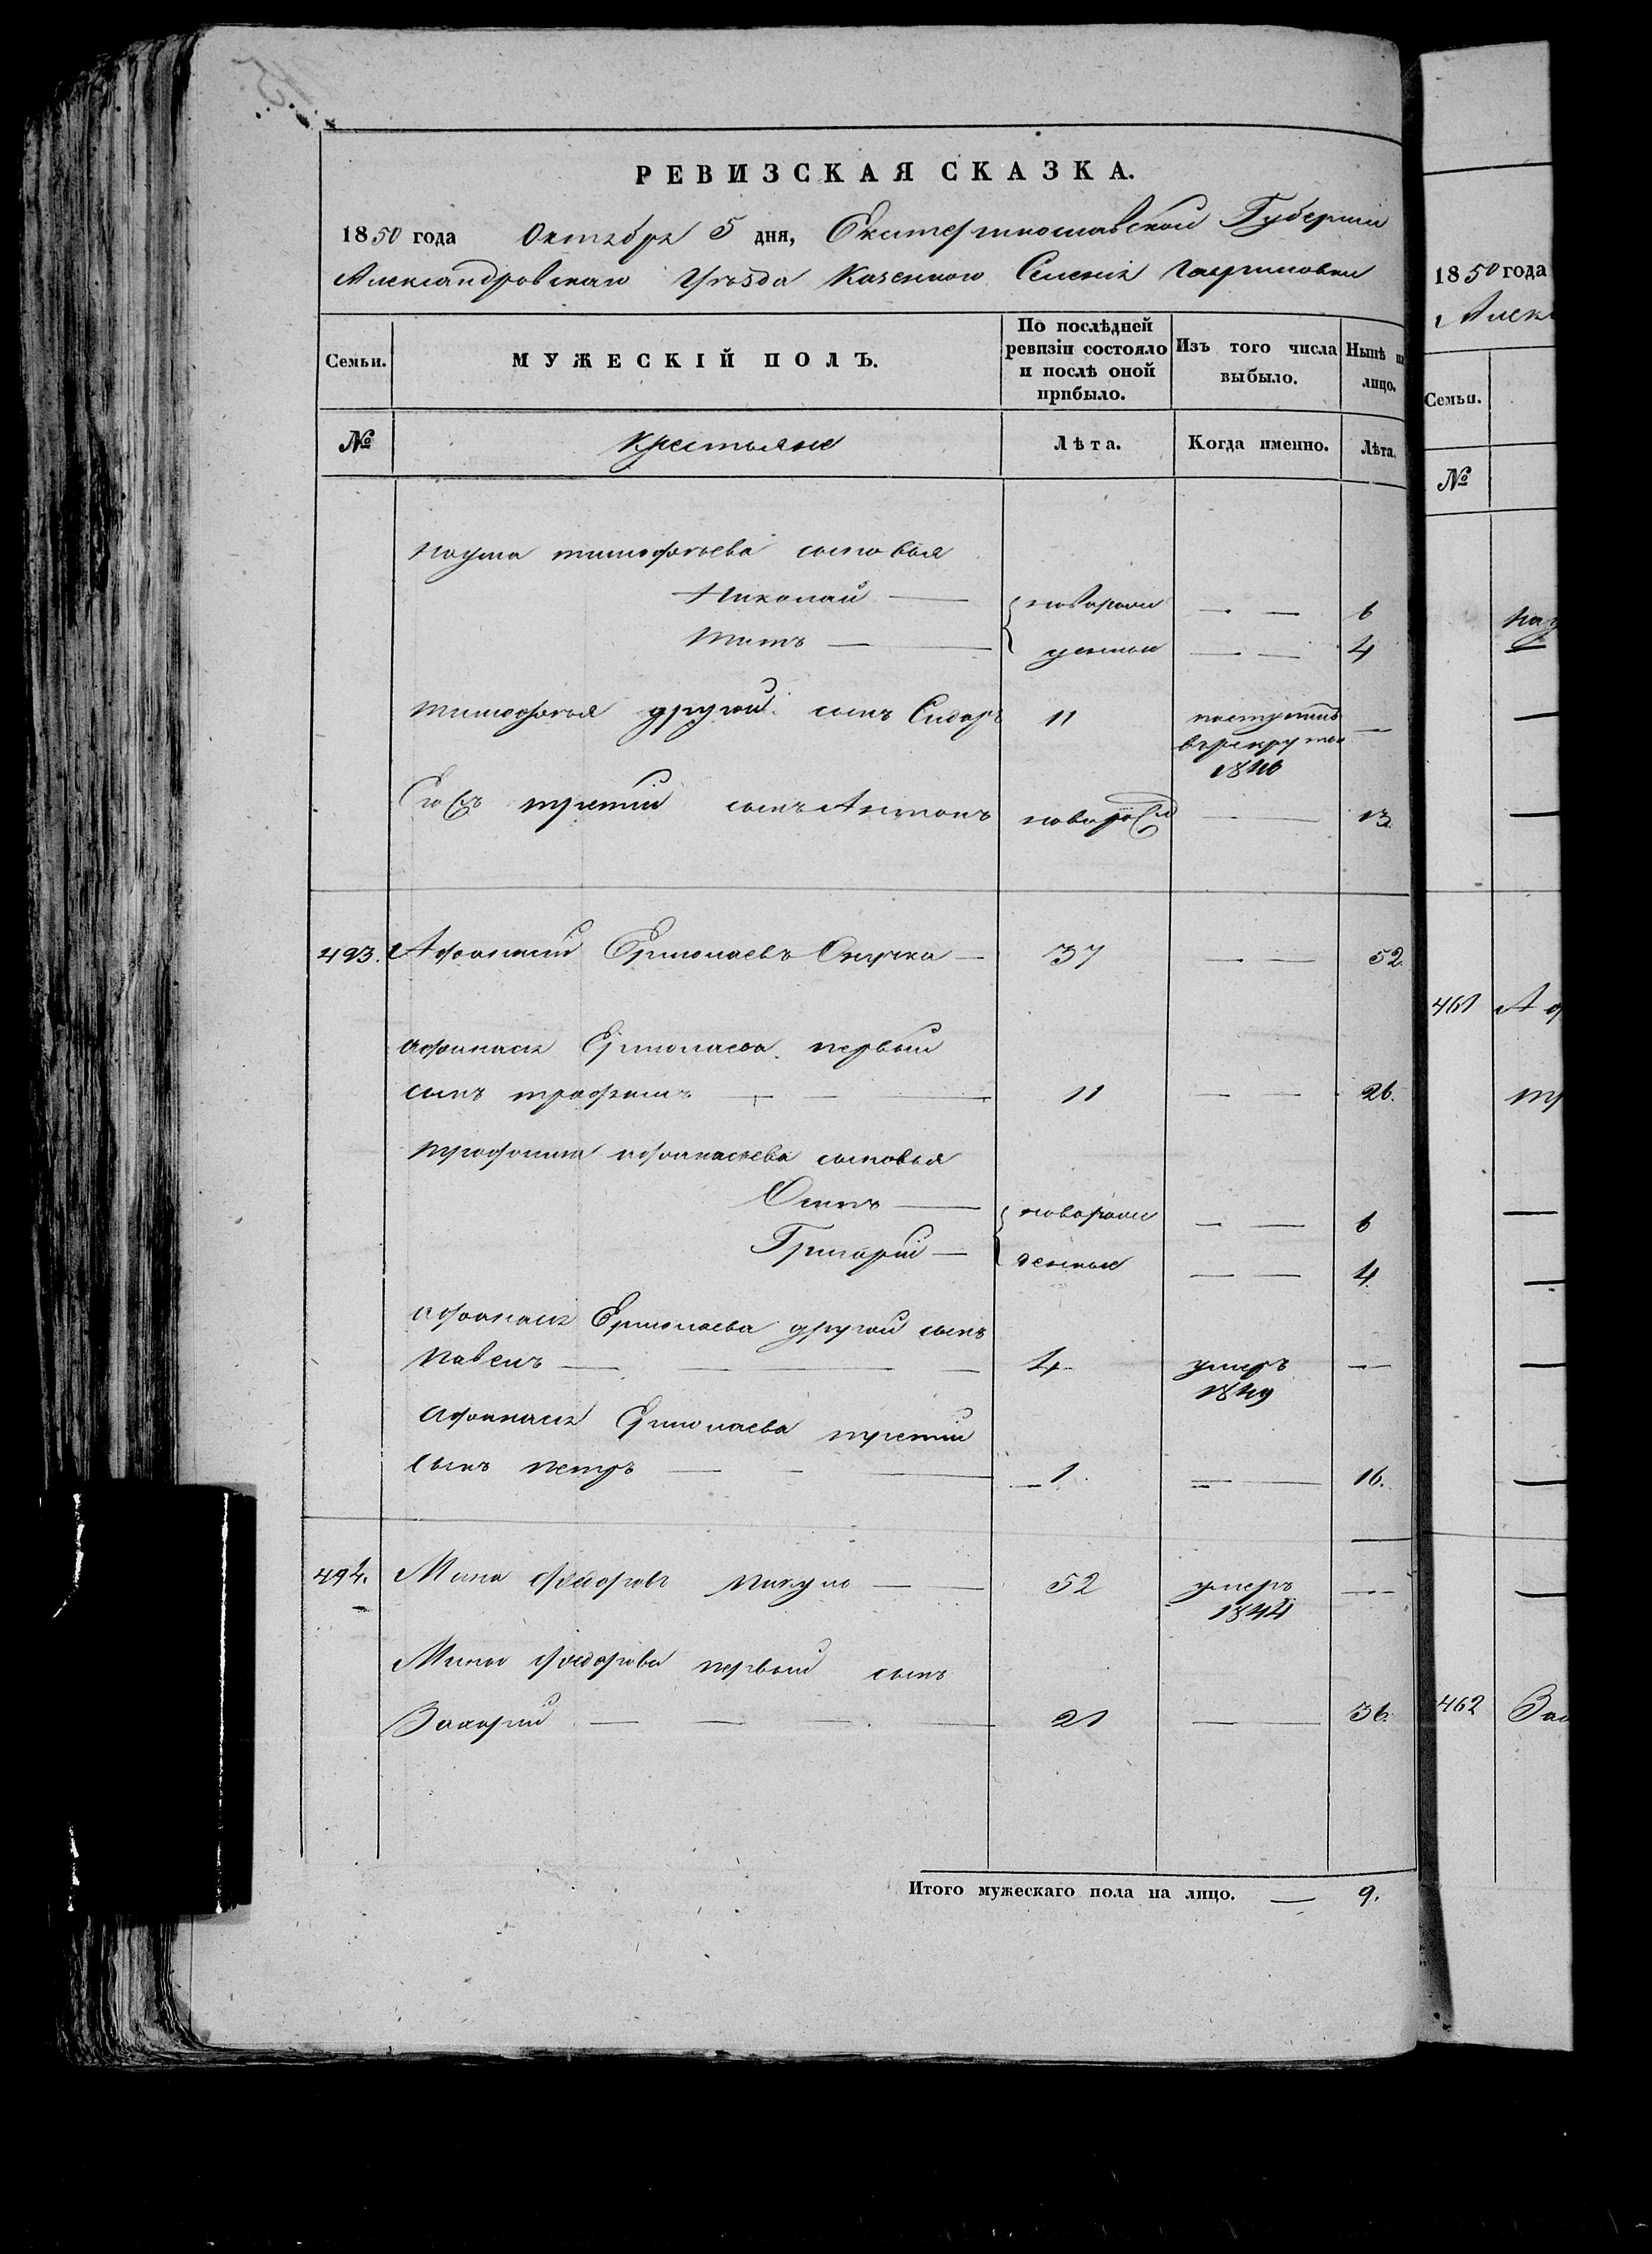 РЕВИЗСКАЯ СКАЗКА.
1850 года Октября 5 дня, Екатеринославской Губерніи
Александровскаго Уѣзда Казеннаго Селенія Гавриловки
Семьи.
МУЖЕСКІЙ ПОЛЪ.
По послѣдней ревизіи состояло и послѣ оной прибыло.
Изъ того числа выбыло.
Нынѣ на лицо.
№
Крестьяне
Лѣта.
Когда именно.
Лѣта.
Наума тимофѣева сыновья
Николай — новорож — — 6
Титъ — денные — — 4
тимофѣя другой сынъ Сидоръ 11 поступилъ —
въ рекруты
1846
Его же третій сынъ Антонъ новорож — 13.
493. Афанасій Ермолаевъ — 37 — — 52.
афанасія Ермолаева первый
сынъ трофимъ — — — 11 — — 26.
трофима афанасьева сыновья
Осипъ — новорож — — 6
Григорій — денные — — 4.
афанасія Ермолаева другой сынъ
Павелъ — — — 4 умеръ —
1849
афанасія Ермолаева третій
сынъ петръ — — — 1. — — 16.
494. Мина Федоровъ Пикуло — — 52 умеръ —
1844
Мины Федорова первый сынъ
Захарий — — — — 21 — 36.
Итого мужескаго пола на лицо. — 9.
1850 года
Алек
Семьи.
№
Нау
461 Аф
Тр
462 Зах